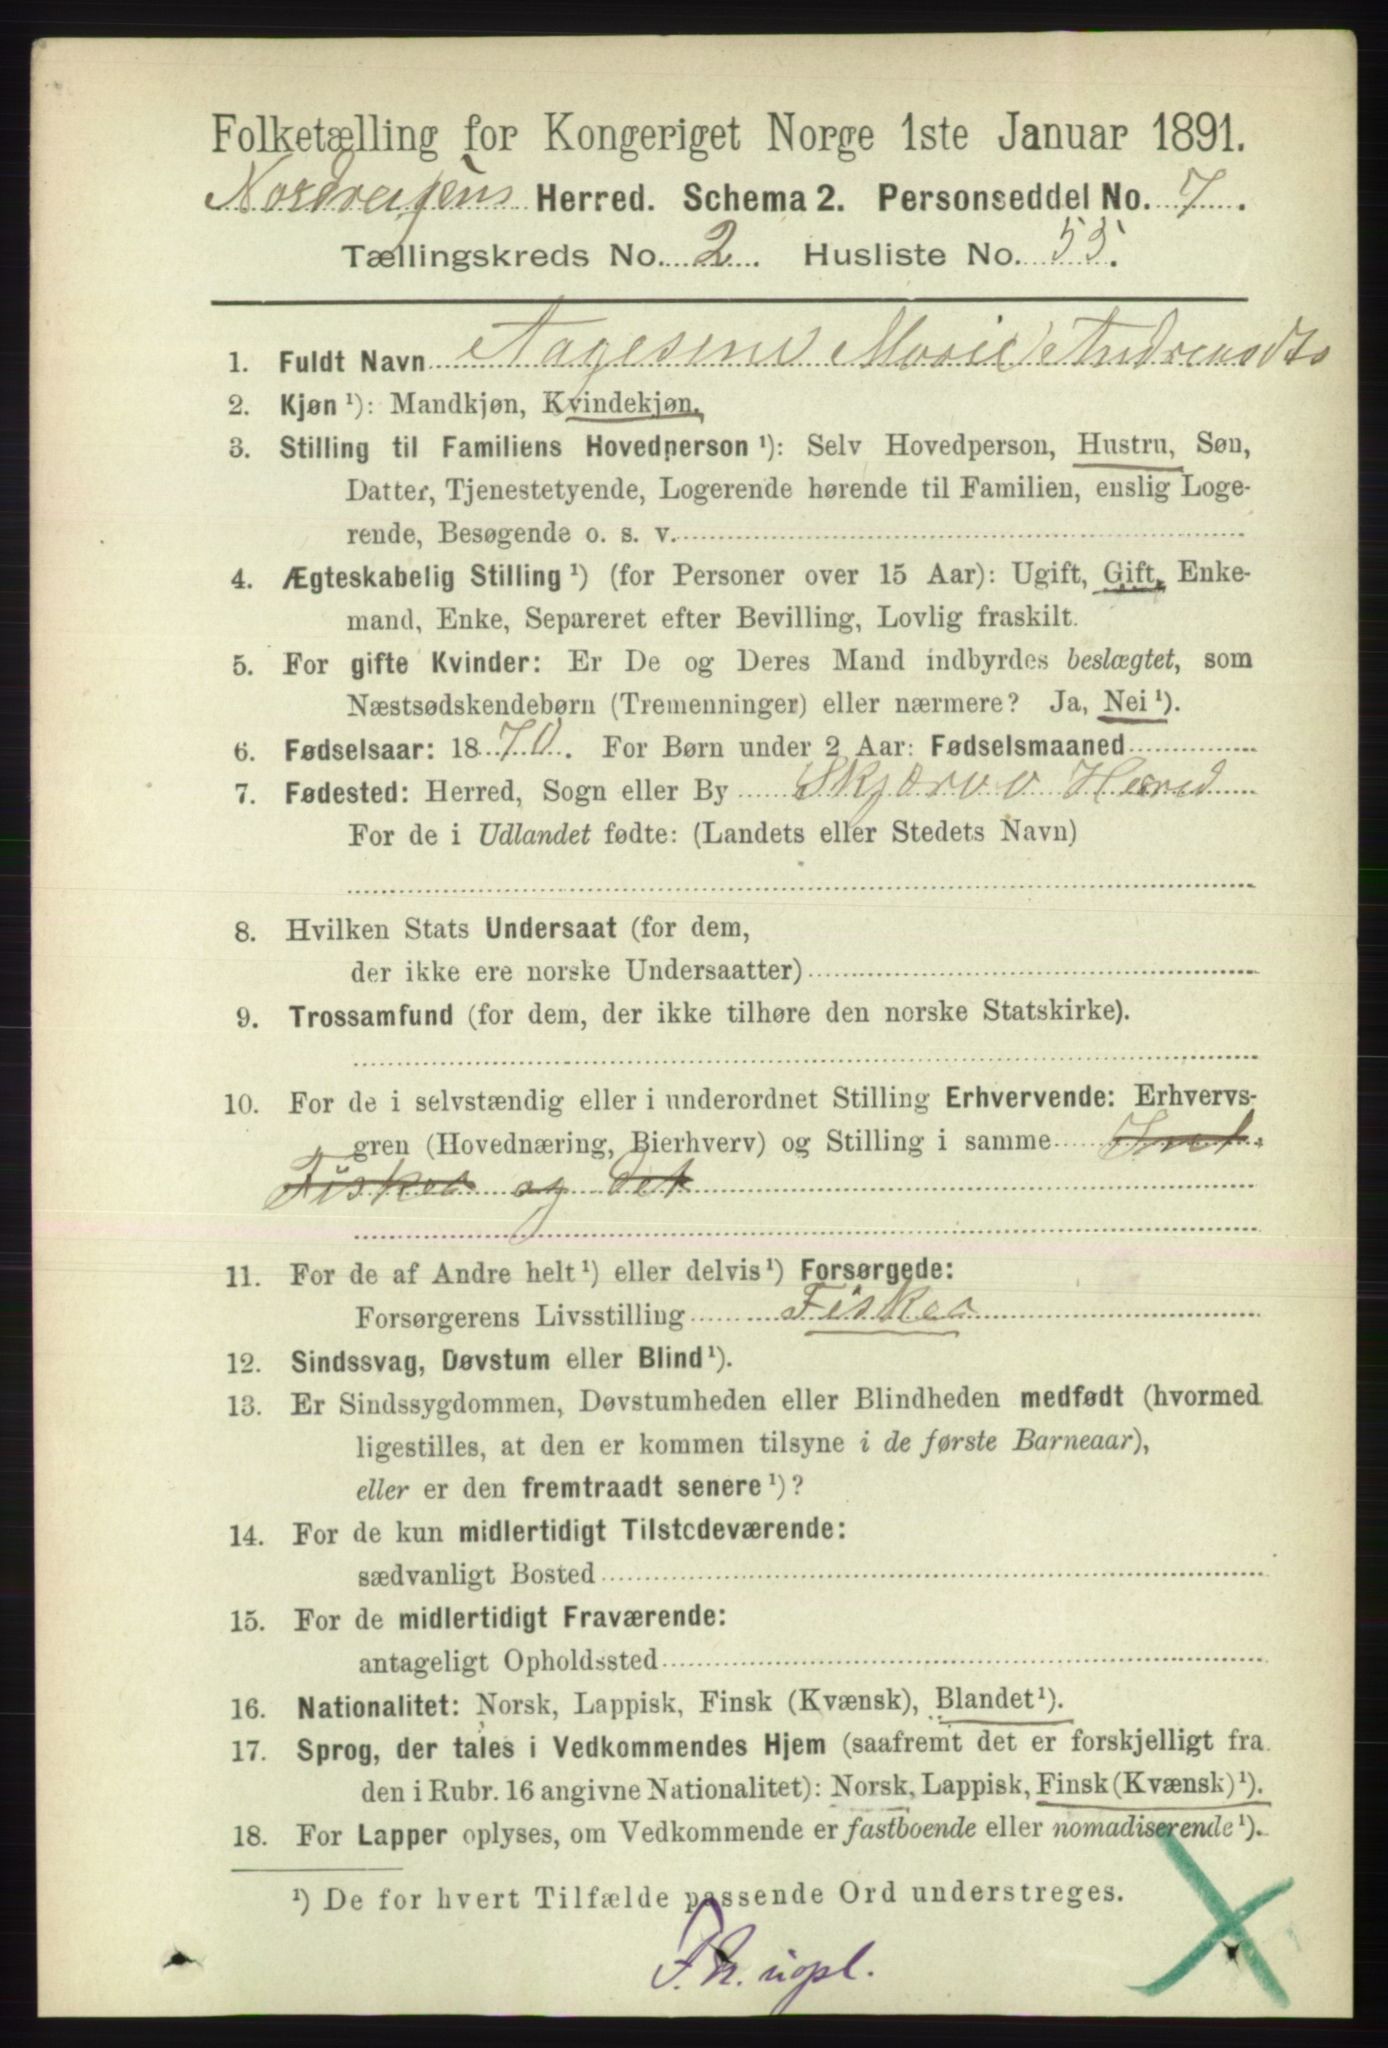 Folketælling for Kongeriget Norge 1ste Januar 1891.
Nordrejsens Herred. Schema 2. Personseddel No. 7.
Tællingskreds No. 2. Husliste No. 55.
1. Fuldt Navn Aagesen Marie Andreasdts
2. Kjøn ¹): Mandkjøn, Kvindekjøn.
3. Stilling til Familiens Hovedperson ¹): Selv Hovedperson, Hustru, Søn,
Datter, Tjenestetyende, Logerende hørende til Familien, enslig Loge-
rende, Besøgende o. s. v.
4. Ægteskabelig Stilling ¹) (for Personer over 15 Aar): Ugift, Gift, Enke-
mand, Enke, Separeret efter Bevilling, Lovlig fraskilt.
5. For gifte Kvinder: Er De og Deres Mand indbyrdes beslægtet, som
Næstsødskendebørn (Tremenninger) eller nærmere? Ja, Nei ¹).
6. Fødselsaar: 1870. For Børn under 2 Aar: Fødselsmaaned
7. Fødested: Herred, Sogn eller By Skjærvø Herred
For de i Udlandet fødte: (Landets eller Stedets Navn)
8. Hvilken Stats Undersaat (for dem,
der ikke ere norske Undersaatter)
9. Trossamfund (for dem, der ikke tilhøre den norske Statskirke).
10. For de i selvstændig eller i underordnet Stilling Erhvervende: Erhvervs-
gren (Hovednæring, Bierhverv) og Stilling i samme
Fisker og det
11. For de af Andre helt ¹) eller delvis ¹) Forsørgede:
Forsørgerens Livsstilling Fisker
12. Sindssvag, Døvstum eller Blind ¹).
13. Er Sindssygdommen, Døvstumheden eller Blindheden medfødt (hvormed
ligestilles, at den er kommen tilsyne i de første Barneaar),
eller er den fremtraadt senere ¹)?
14. For de kun midlertidigt Tilstedeværende:
sædvanligt Bosted
15. For de midlertidigt Fraværende:
antageligt Opholdssted
16. Nationalitet: Norsk, Lappisk, Finsk (Kvænsk), Blandet ¹).
17. Sprog, der tales i Vedkommendes Hjem (saafremt det er forskjelligt fra
den i Rubr. 16 angivne Nationalitet): Norsk, Lappisk, Finsk (Kvænsk) ¹).
18. For Lapper oplyses, om Vedkommende er fastboende eller nomadiserende ¹).
¹) De for hvert Tilfælde passende Ord understreges.
F.h. uopl.